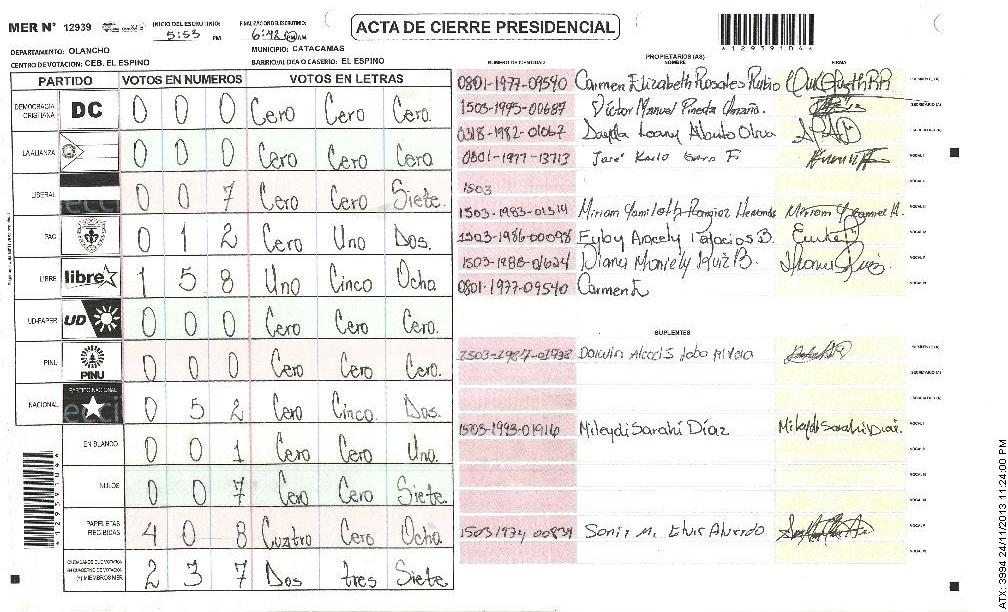 MER N° 12939 INICIO DEL ESCRUTINIO: 5:53 PM FINALIZACION ESCRUTINIO: 6:42 PM AM
ACTA DE CIERRE PRESIDENCIAL
*12939104*
DEPARTAMENTO: OLANCHO MUNICIPIO: CATACAMAS
CENTRO DE VOTACION: CEB. EL ESPINO BARRIO/ALDEA O CASERIO: EL ESPINO
PARTIDO VOTOS EN NUMEROS VOTOS EN LETRAS
DEMOCRACIA CRISTIANA DC 0 0 0 Cero Cero Cero.
LA ALIANZA 0 0 0 Cero Cero Cero
LIBERAL 0 0 7 Cero Cero Siete.
PAC 0 1 2 Cero Uno Dos.
LIBRE libre 1 5 8 Uno Cinco Ocho
UD-FAPER UD 0 0 0 Cero Cero Cero.
PINU PINU 0 0 0 Cero Cero Cero.
NACIONAL PARTIDO NACIONAL 0 5 2 Cero Cinco Dos.
EN BLANCO 0 0 1 Cero Cero Uno.
NULOS 0 0 7 Cero Cero Siete.
PAPELETAS RECIBIDAS 4 0 8 Cuatro Cero Ocho
CIUDADANOS QUE VOTARON EN CUADERNO DE VOTACION (+) MIEMBROS MER 2 3 7 Dos tres Siete
PROPIETARIOS (AS)
NUMERO DE IDENTIDAD NOMBRE FIRMA
0801-1977-09540 Carmen Elizabeth Rosales Rubio
1503-1995-00687 Victor Manuel Pineda
0318-1982-01067
0801-1977-13713 José Karlo
1503
1503-1983-01314 Miriam Yamileth
1503-1986-00098 Eyby Aracely Palacios B.
1503-1988-01624 Diana Mariely Ruiz B.
0801-1977-09540 Carmen E
SUPLENTES
1503-1987-01938 Darwin Alexis Lobo
1503-1993-01916 Mileydi Sarahí Díaz Mileydi Sarahí Díaz.
1503-1974-00834 Sonia M.
ATX: 3994 24/11/2013 11:24:00 PM